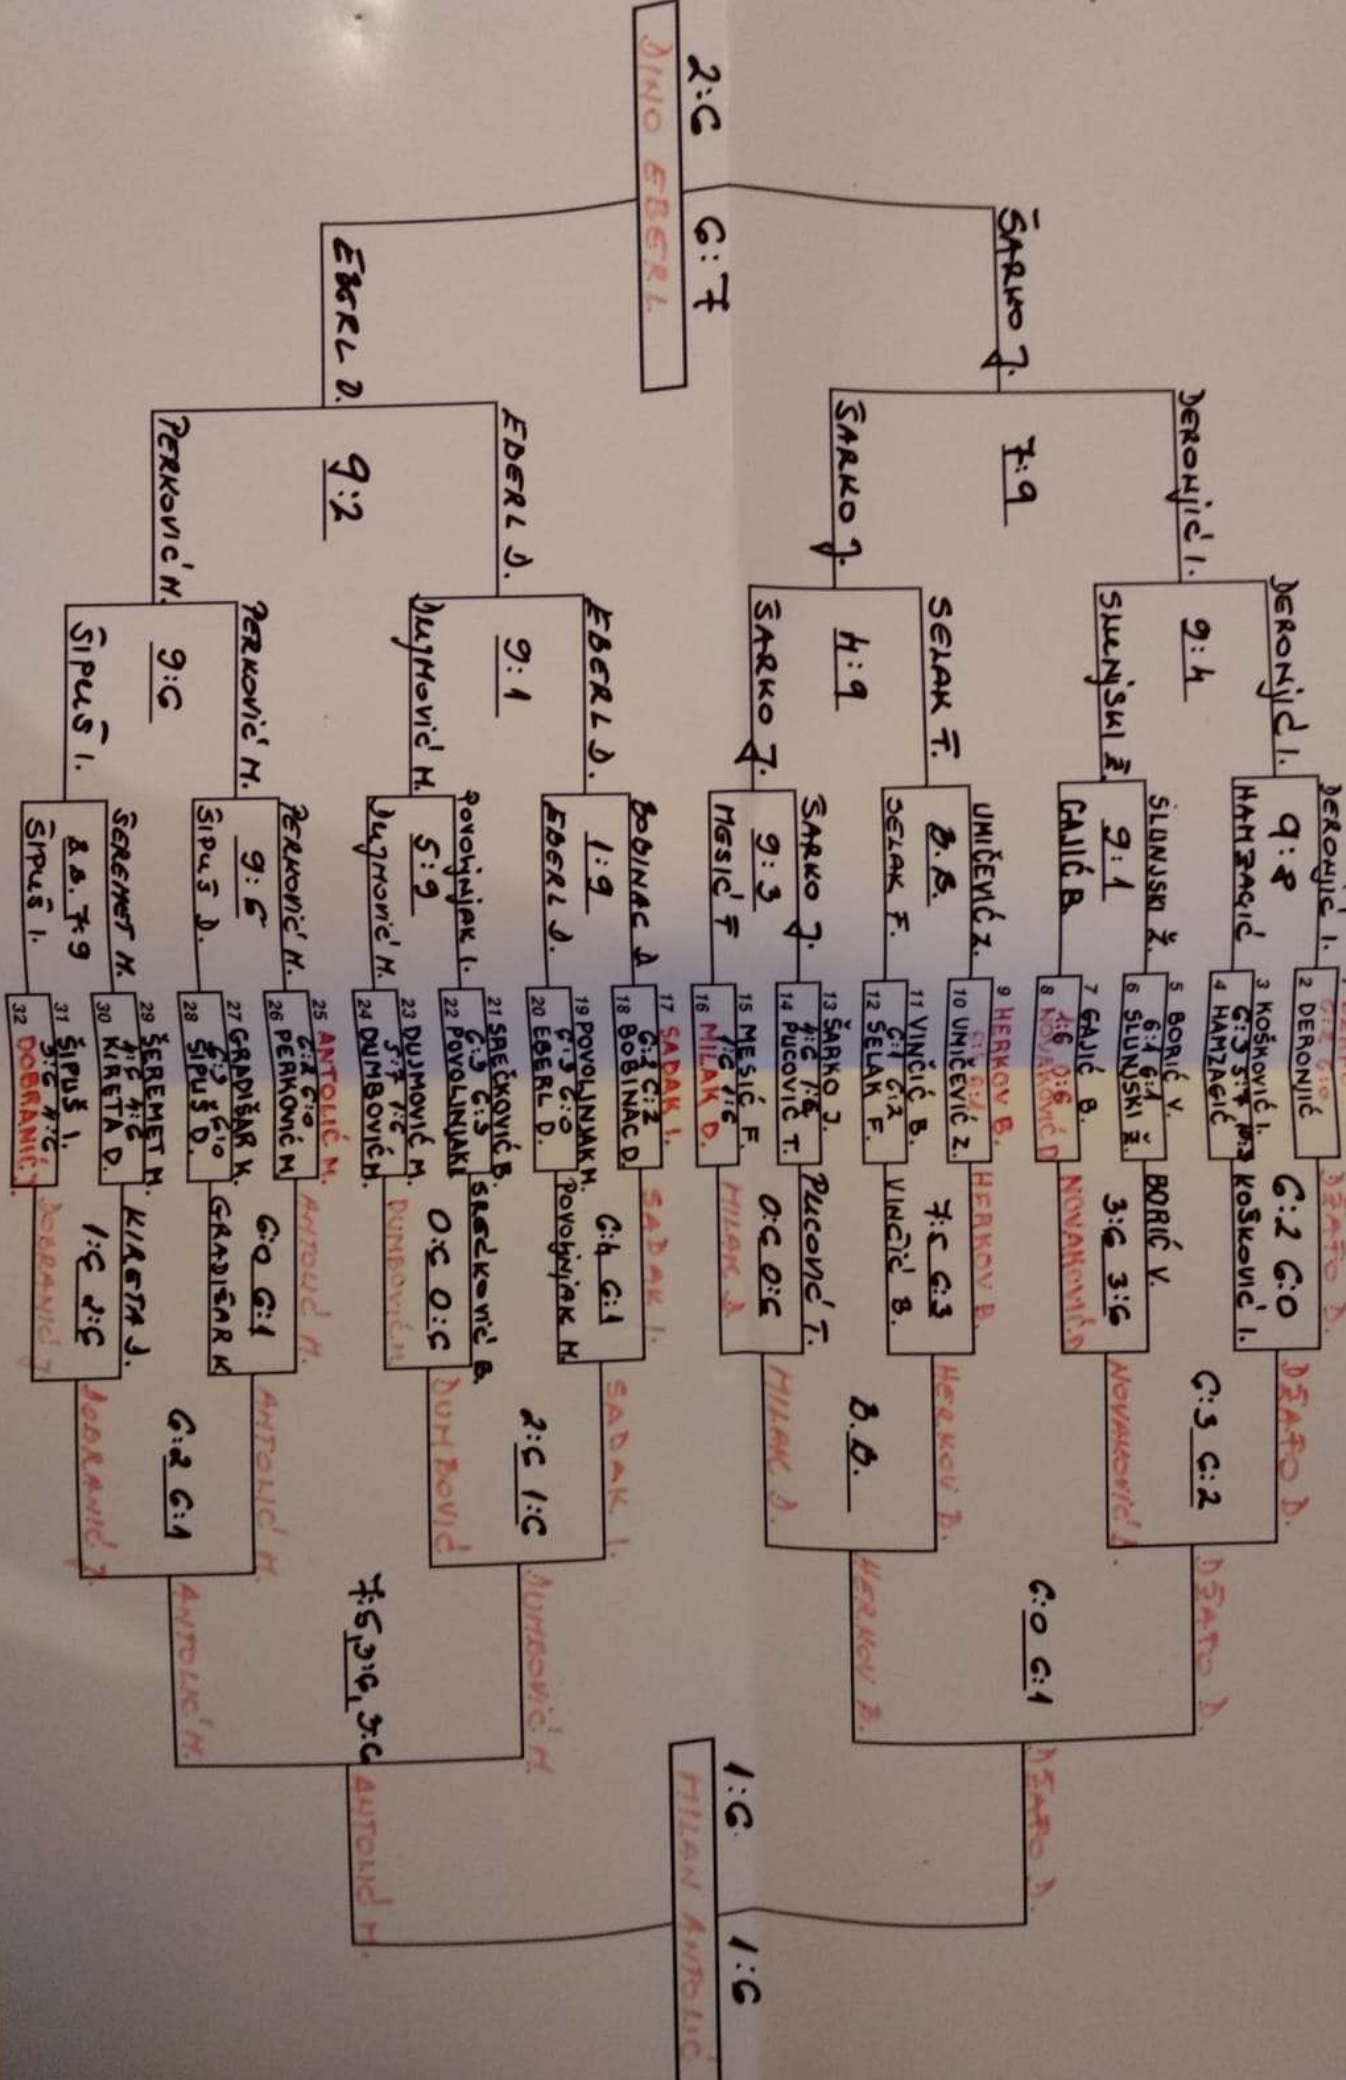 2:6 6:7
DINO EBERL
ŠARKO J.
EBERL D.
DERONJIĆ I.
7:9
ŠARKO J.
EBERL D.
9:2
PERKOVIĆ M.
DERONJIĆ I.
9:4
SLUNJSKI Ž.
SELAK F.
4:9
ŠARKO J.
EBERL D.
9:1
DUJMOVIĆ M.
PERKOVIĆ M.
9:6
ŠIPUŠ I.
DERONJIĆ I.
9:8
HAMZAGIĆ
SLUNJSKI Ž.
9:1
GAJIĆ B.
UMIČEVIĆ Z.
B.B.
SELAK F.
ŠARKO J.
9:3
MESIĆ F
BOBINAC D
1:9
EBERL D.
POVOLJNJAK I.
5:9
DUJMOVIĆ M.
PERKOVIĆ M.
9:6
ŠIPUŠ D.
ŠEREMET M.
7:9
ŠIPUŠ I.
2 DERONJIĆ
3 KOŠKOVIĆ I.
6:3 5:7
4 HAMZAGIĆ
5 BORIĆ V.
6:1 6:1
6 SLUNJSKI Ž.
7 GAJIĆ B.
1:6 0:6
8 NOVAKOVIĆ D
9 HERKOV B.
10 UMIČEVIĆ Z.
11 VINČIĆ B.
6:1 6:2
12 SELAK F.
13 ŠARKO J.
4:6 1:6
14 PUCOVIĆ T.
15 MESIĆ F.
1:6 1:6
16 MILAK D.
17 SADAK I.
6:2 6:2
18 BOBINAC D.
19 POVOLJNJAK M.
6:3 6:0
20 EBERL D.
21 SREČKOVIĆ B.
6:3 6:3
22 POVOLJNJAK I
23 DUJMOVIĆ M.
5:7 1:6
24 DUMBOVIĆ M.
25 ANTOLIĆ M.
6:2 6:0
26 PERKOVIĆ M
27 GRADIŠAR K.
6:3 6:0
28 ŠIPUŠ D.
29 ŠEREMET M.
4:6 4:6
30 KIRETA D.
31 ŠIPUŠ I.
3:6 4:6
32 DOBRANIĆ J.
DŽAFO D.
6:2 6:0
KOŠKOVIĆ I.
BORIĆ V.
3:6 3:6
NOVAKOVIĆ D
HERKOV B.
7:5 6:3
VINČIĆ B.
PUCOVIĆ T.
0:6 0:6
MILAK D
SADAK I.
6:4 6:1
POVOLJNJAK M.
SREČKOVIĆ B.
0:6 0:6
DUMBOVIĆ M
ANTOLIĆ M.
6:0 6:1
GRADIŠAR K
KIRETA D.
1:6 2:6
DOBRANIĆ J
DŽAFO D.
6:3 6:2
NOVAKOVIĆ D.
HERKOV B.
B.B.
MILAK D.
SADAK I.
2:6 1:6
DUMBOVIĆ
ANTOLIĆ M.
6:2 6:1
DOBRANIĆ J.
DŽAFO D.
6:0 6:1
HERKOV B.
DUMBOVIĆ M.
7:5, 3:6, 3:6
ANTOLIĆ M.
DŽAFO D.
ANTOLIĆ M.
1:6 1:6
MILAN ANTOLIĆ